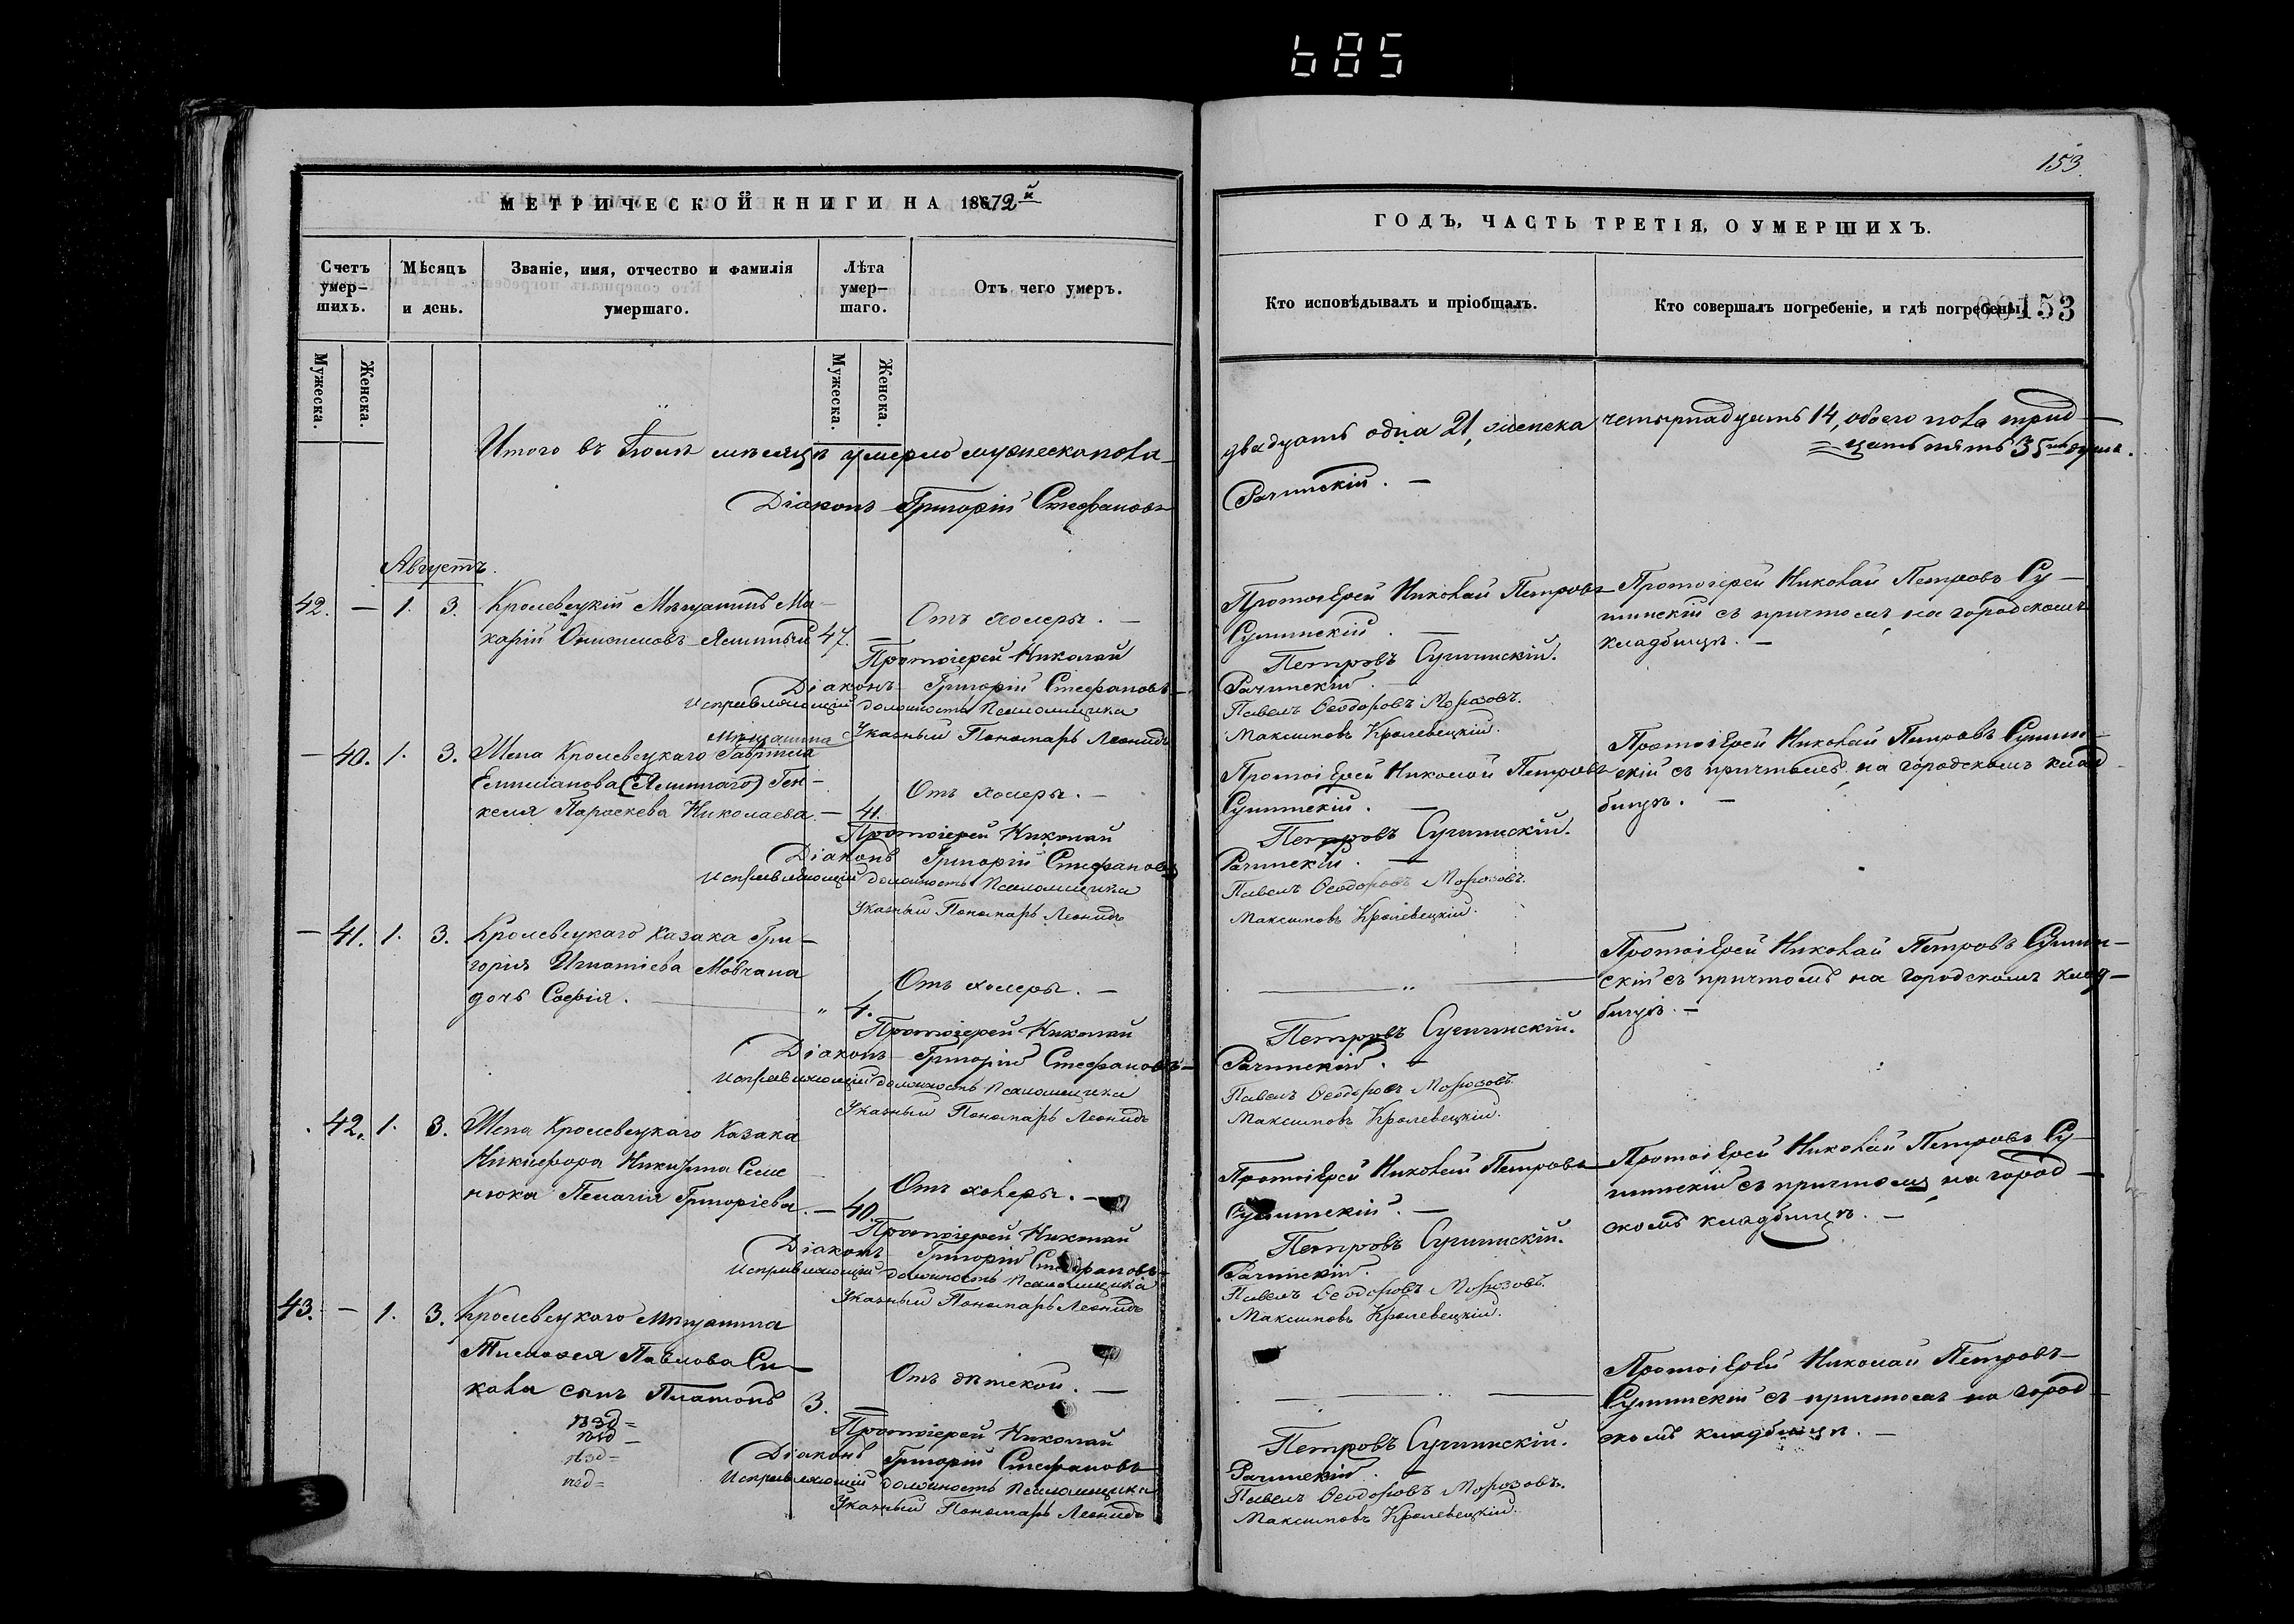 685
МЕТРИЧЕСКОЙ КНИГИ НА 1872й
Счетъ умер-шихъ.
Мѣсяцъ и день.
Званіе, имя, отчество и фамилія умершаго.
Лѣта умер-шаго.
Отъ чего умеръ.
Мужеска.
Женска.
Мужеска.
Женска.
Итого въ Іюлѣ мѣсяцѣ умерло мужеска пола
Діаконъ Григорій Стефановъ
Августъ.
42. — 1. 3. Кролевецкій Мѣщанинъ Ма-
карій Онисимовъ 47. — Отъ холеры. —
Протоіерей Николай
Діаконъ Григорій Стефановъ
Исправляющій должность Псаломщика
Указный Пономарь Леонидъ
— 40. 1. 3. Жена Кролевецкаго мѣщанина Гавріила
Емиліанова
Параскева Николаева. — 41. Отъ холеры. —
Протоіерей Николай
Діаконъ Григорій Стефановъ
Исправляющій должность Псаломщика
Указный Пономарь Леонидъ
— 41. 1. 3. Кролевецкаго Казака Гри-
горія Игнатіева Мовчана
дочь Софія. " 4. Отъ холеры. —
Протоіерей Николай
Діаконъ Григорій Стефановъ
Исправляющій должность Псаломщика
Указный Пономарь Леонидъ
42. 1. 3. Жена Кролевецкаго Казака
Никифора Никитина Семе
нюка Пелагія Григоріева. — 40. Отъ холеры. —
Протоіерей Николай
Діаконъ Григорій Стефановъ
Исправляющій должность Псаломщика
Указный Пономарь Леонидъ
43. — 1. 3. Кролевецкаго Мѣщанина
Тимофея Павлова Си-
кала сынъ Платонъ 3. — Отъ дѣтской. —
Протоіерей Николай
Діаконъ Григорій Стефановъ
Исправляющій должность Псаломщика
Указный Пономарь Леонидъ
153.
ГОДЪ, ЧАСТЬ ТРЕТІЯ, О УМЕРШИХЪ.
Кто исповѣдывалъ и пріобщалъ.
Кто совершалъ погребеніе, и гдѣ погребены.
00153
двадцать одна 21, женска четырнадцать 14, обоего пола трид-
цать пять 35 душъ.
Рачинскій. —
Протоіерей Николай Петровъ
Сушинскій. —
Протоіерей Николай Петровъ Су-
шинскій съ причтомъ, на городскомъ
кладбищѣ. —
Петровъ Сушинскій.
Рачинскій. —
Павелъ Ѳеодоровъ Морозовъ.
Максимовъ Кролевецкій.
Протоіерей Николай Петровъ
Сушинскій. —
Протоіерей Николай Петровъ Сушин-
скій съ причтомъ, на городскомъ клад-
бищѣ. —
Петровъ Сушинскій.
Рачинскій. —
Павелъ Ѳеодоровъ Морозовъ.
Максимовъ Кролевецкій.
Протоіерей Николай Петровъ Сушин-
скій съ причтомъ на городскомъ клад-
бищѣ. —
Петровъ Сушинскій.
Рачинскій. —
Павелъ Ѳеодоровъ Морозовъ
Максимовъ Кролевецкій.
Протоіерей Николай Петровъ
Сушинскій. —
Протоіерей Николай Петровъ Су-
шинскій съ причтомъ, на город-
скомъ кладбищѣ. —
Петровъ Сушинскій.
Рачинскій.
Павелъ Ѳеодоровъ Морозовъ.
Максимовъ Кролевецкій.
Протоіерей Николай Петровъ
Сушинскій съ причтомъ на город-
скомъ кладбищѣ. —
Петровъ Сушинскій.
Рачинскій. —
Павелъ Ѳеодоровъ Морозовъ.
Максимовъ Кролевецкій.